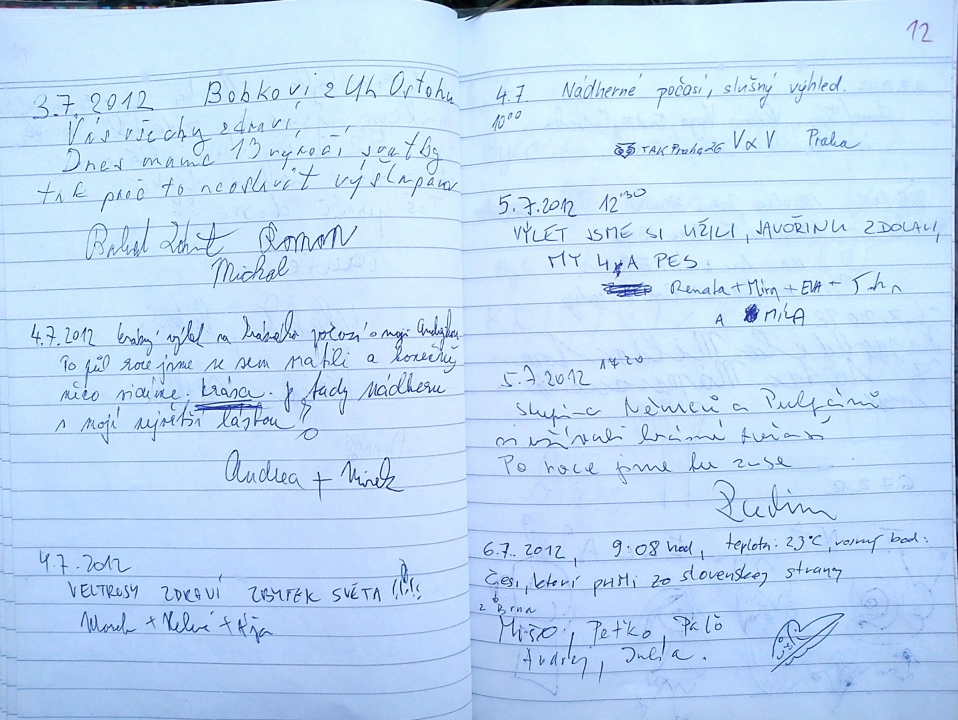 3.7.2012 Bobkovi z Uh Ostohu
Vás všechy zdraví
Dnes máme 13 výročí svatby
tak proč to neoslavit výšlapem
Roman
Michal
4.7.2012 krásný výlet na
To půl roce jsme se sem vrátili a konečně
něco vidíme. krása. Je tady nádherně
s mojí největší láskou
Andrea + Mirek
4.7.2012
VELTRUSY ZDRAVÍ ZBYTEK SVĚTA !!!!
12
4.7 Nádherné počasí, slušný výhled.
10⁰⁰
V & V Praha
5.7.2012 12³⁰
VÝLET JSME SI UŽILI, JAVOŘINU ZDOLALI,
MY 4 A PES.
Renata + Mira + EVA +
A MÍLA
5.7.2012 17²⁰
Skupina Němců a
si užívali krásné
Po roce jsme tu zase
Radim
6.7.2012, 9:08 hod, teplota: 23°C, rosný bod:
Česi, ktorí prišli zo slovenskej strany
z Brna
Mišo, Peťko, Paľo
Andrej, Julia.